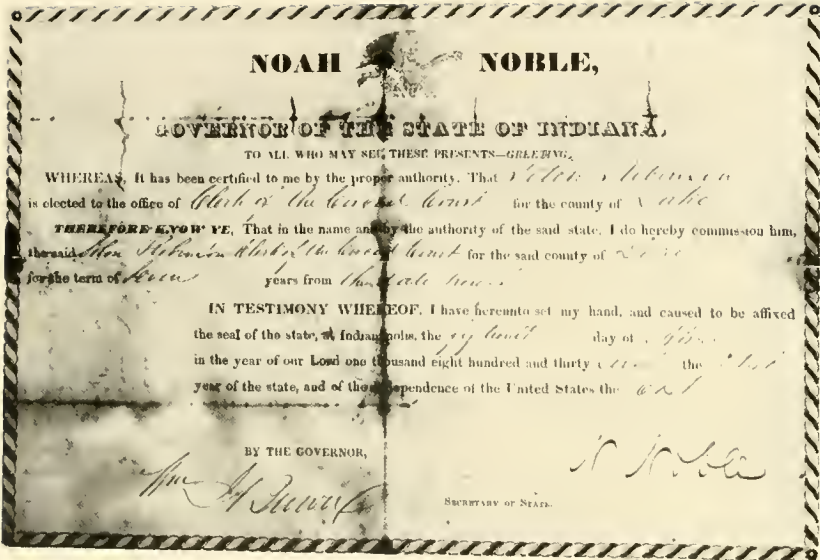 NOAH NOBLE,
GOVERNOR OF THE STATE OF INDIANA,
TO ALL WHO MAY SEE THESE PRESENTS—GREETING,
WHEREAS, It has been certified to me by the proper authority. That Solon Robinson
is elected to the office of Clerk of the Circuit Court for the county of Lake
THEREFORE KNOW YE, That in the name and by the authority of the said state, I do hereby commission him,
the said Solon Robinson Clerk of the Circuit Court for the said county of Lake
for the term of Seven years from the date hereof
IN TESTIMONY WHEREOF, I have hereunto set my hand, and caused to be affixed
the seal of the state, at Indianapolis, the day of
in the year of our Lord one thousand eight hundred and thirty the
year of the state, and of the Independence of the United States the
BY THE GOVERNOR,
N Noble
Wm
SECRETARY OF STATE.